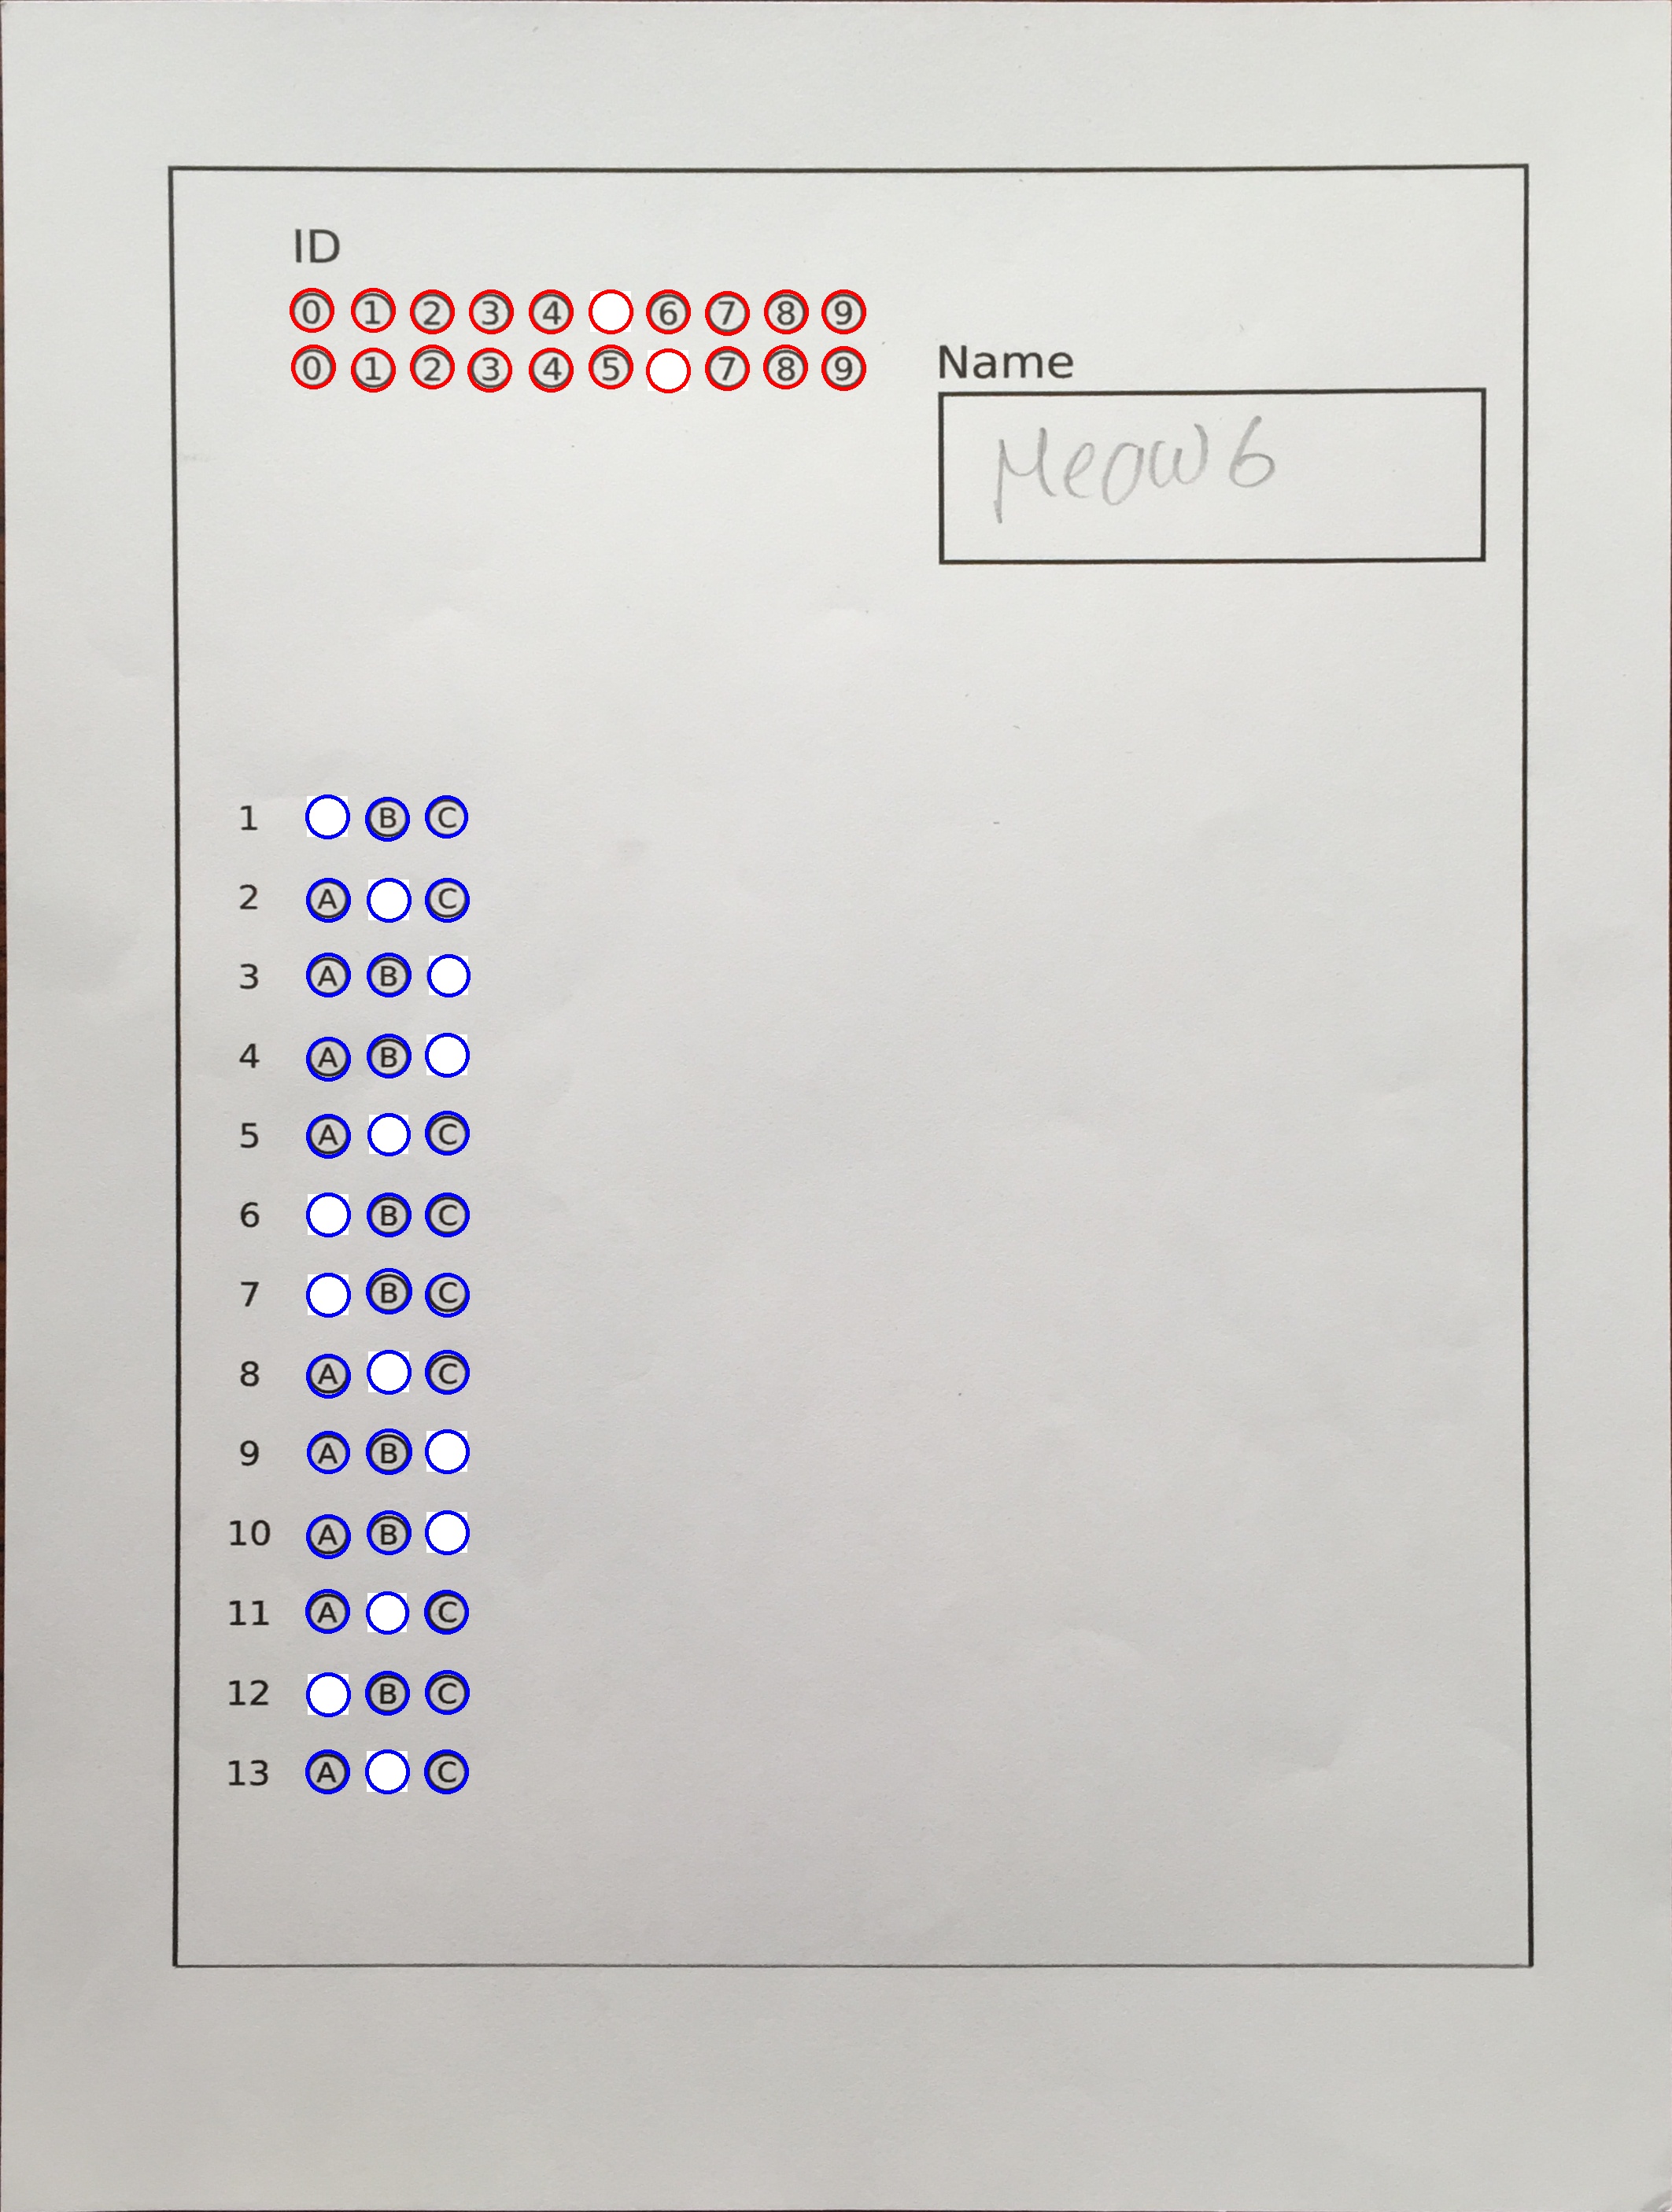 ID
0 1 2 3 4 6 7 8 9
0 1 2 3 4 5 7 8 9
Name
Meow6
1 B C
2 A C
3 A B
4 A B
5 A C
6 B C
7 B C
8 A C
9 A B
10 A B
11 A C
12 B C
13 A C